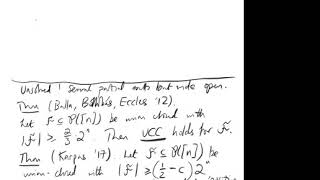 Unsolved! Several partial results but wide open.
Thm (Balla, Bollobás, Eccles '12).
Let F ⊆ P([n]) be union closed with
|F| ≥ 2/3 2^n. Then UCC holds for F.
Thm (Karpas '17). Let F ⊆ P([n]) be
union-closed with |F| ≥ (1/2 - c) 2^n